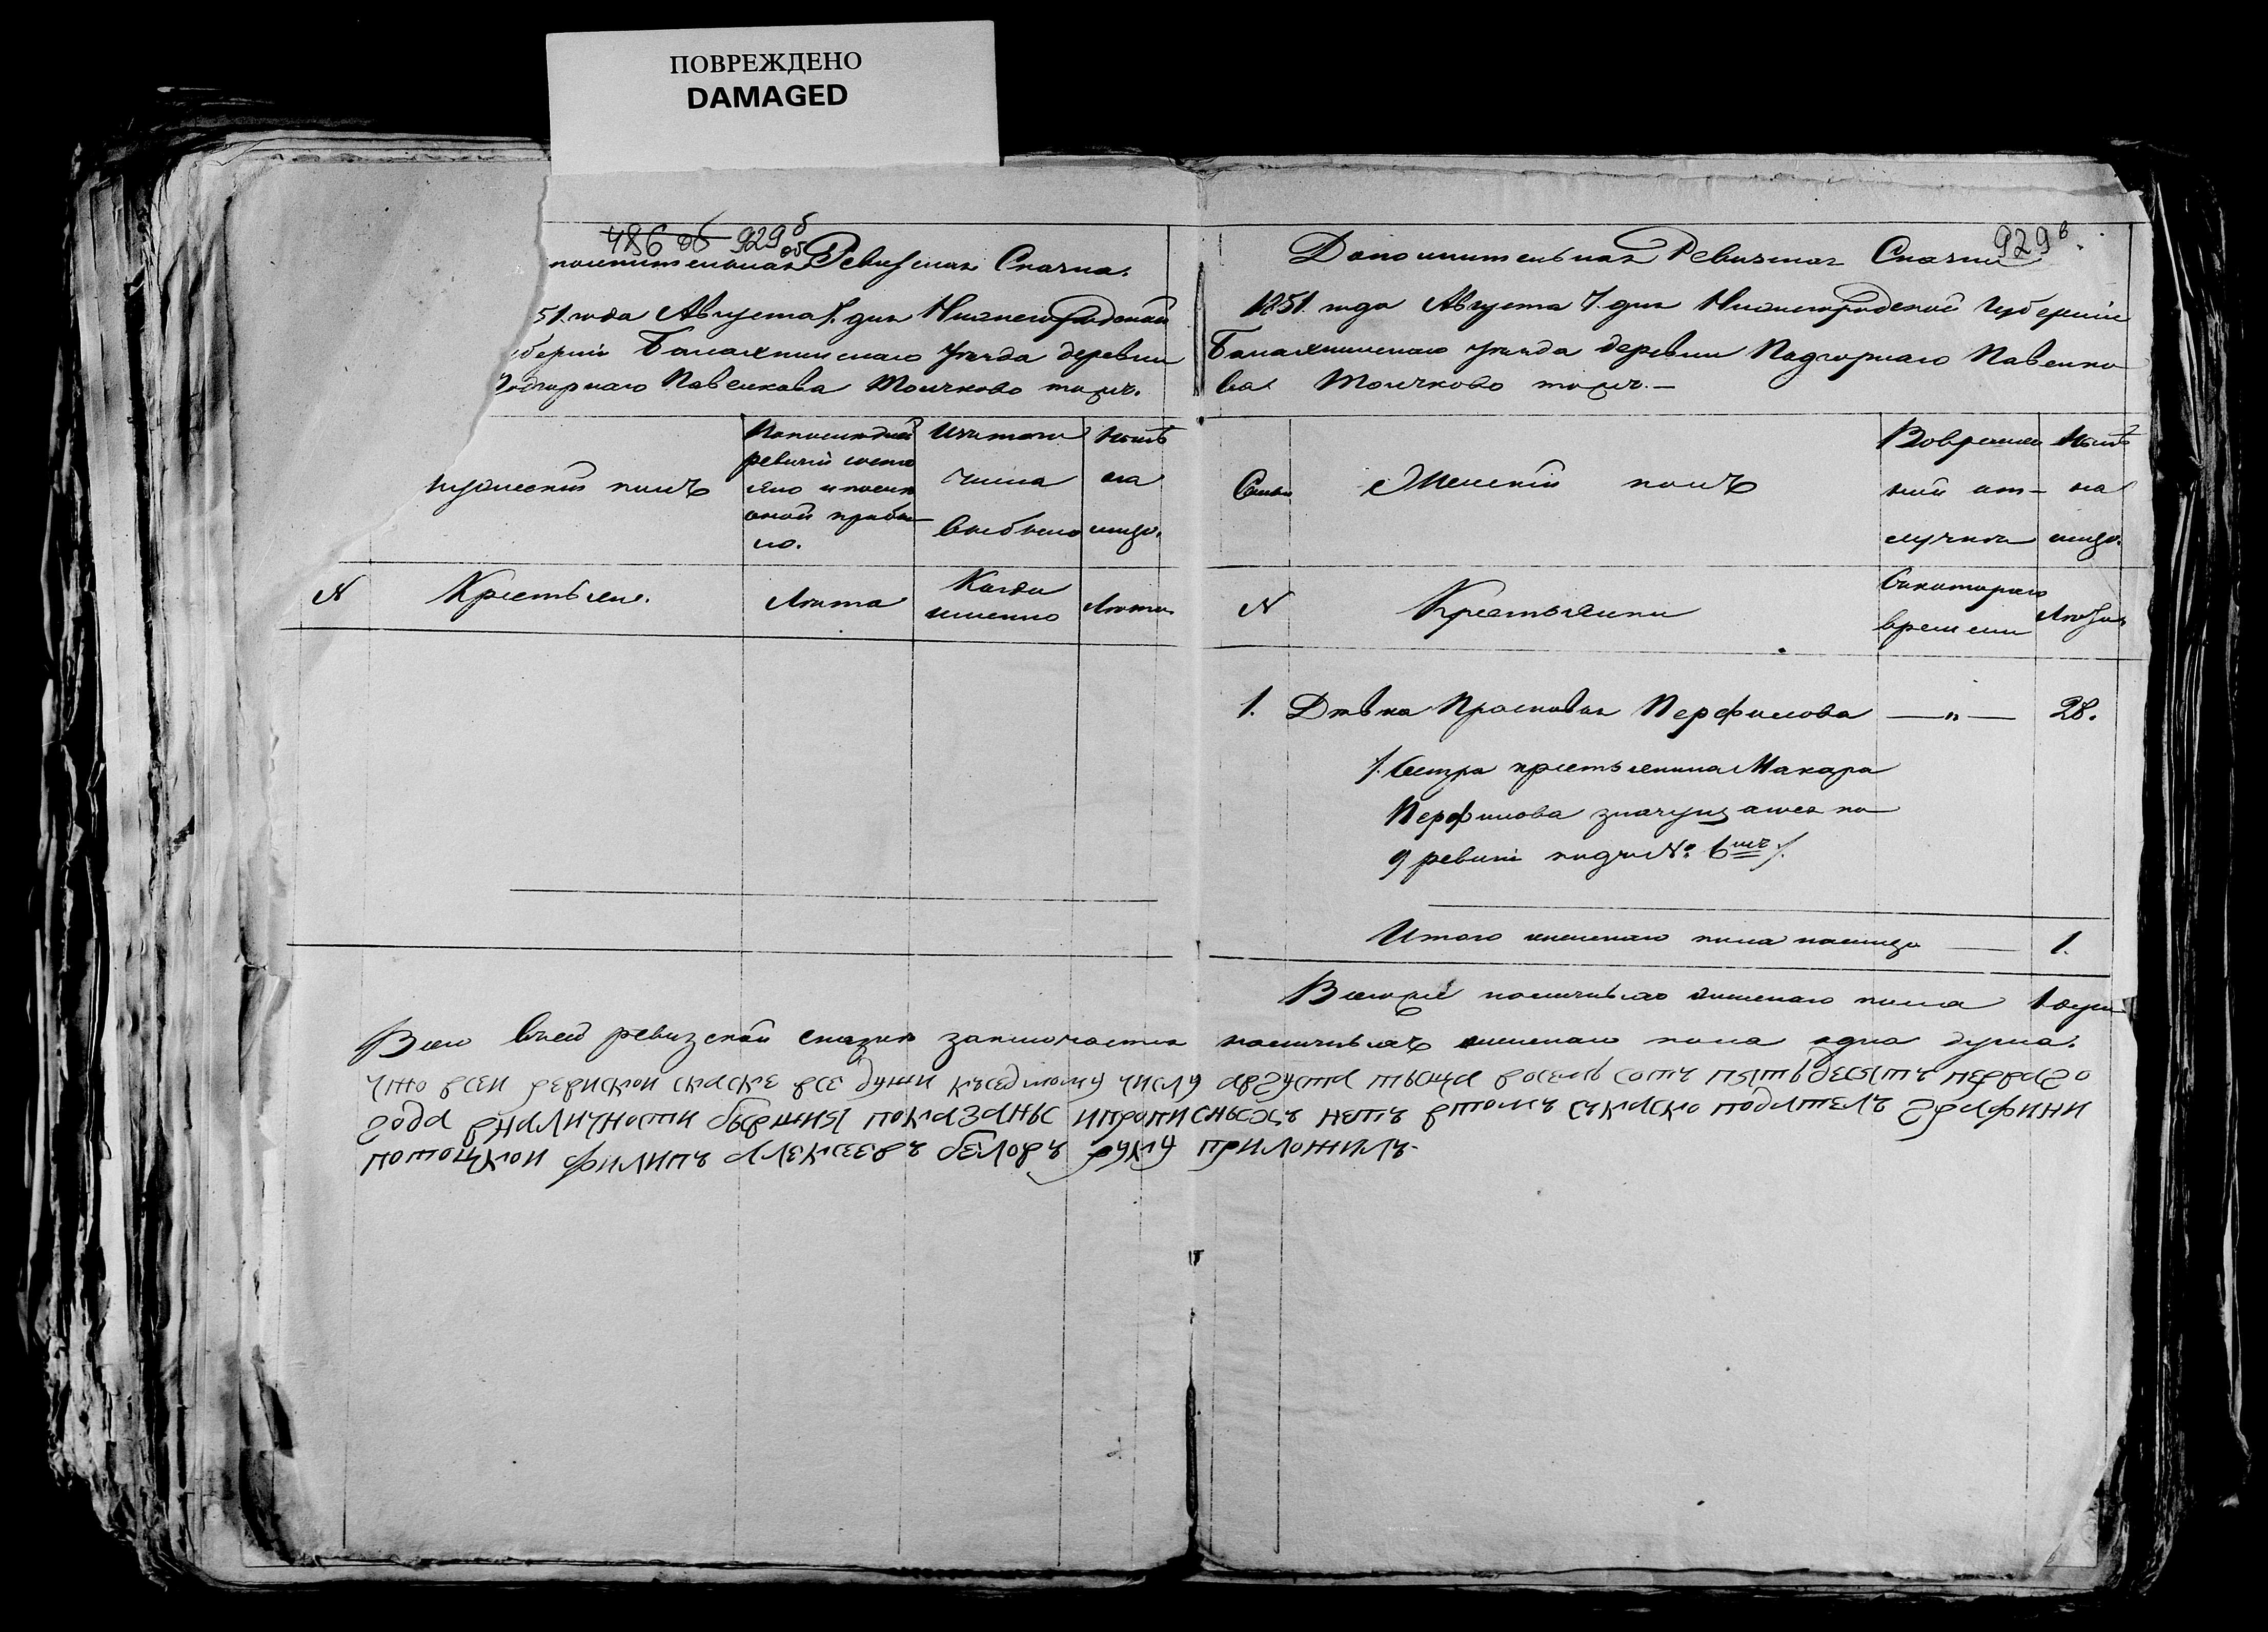 ПОВРЕЖДЕНО
DAMAGED
486 об 929 б
об
полнительная Ревизская Сказка.
51. года Августа 7. дня Нижегородской
уберніи Балахнинскаго уѣзда деревни
Подгорнаго Павенкова тожъ.
мужескій полъ
По последней
ревизіи состо
яло и после
оной прибы
ло.
Изъ того
числа
выбыло
Нынѣ
на
лицо.
N
Крестьяне.
Лѣта
Когда
именно
Лѣта
929 в.
Дополнительная Ревизская Сказка
1851. года Августа 7. дня Нижегородской Губерніи
Балахнинскаго уѣзда деревни Подгорнаго Павенко
ва тожъ.—
Семьи
Женскій полъ
Во времен
ной от-
лучки
Нынѣ
на
лицо.
N
Крестьянки
Съ котораго
времени
Лѣта
1. Дѣвка Прасковья Перфилова —„— 28.
/. Сестра крестьянина Макара
Перфилова значущаяся по
9 ревизіи подъ № 6мъ /.
Итого женскаго пола налицо — 1.
Всего же наличныхъ женскаго пола 1 душа
Всего въ сей ревизской сказке заключается наличныхъ женскаго пола одна душа.
что всеи ревиской скаске все души кседмому числу августа тысща восемь сотъ пятьдесятъ перваго
года вналичности бывшия показаны ипрописныхъ нетъ втомъ скаско податель графини
Филипъ алексеевъ беловъ руку приложилъ